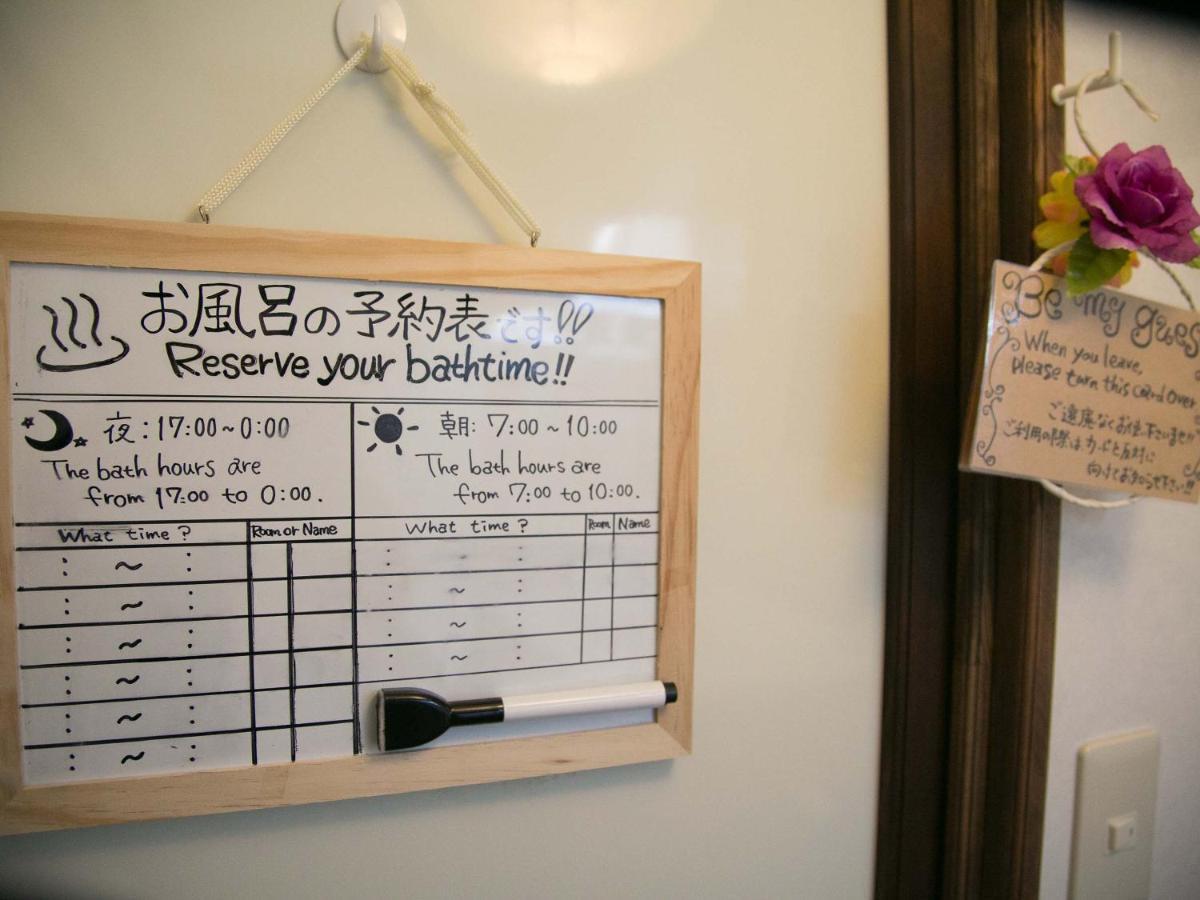 お風呂の予約表です!!
Reserve your bathtime!!
夜:17:00~0:00
The bath hours are
from 17:00 to 0:00.
What time? Room or Name
: ~ :
: ~ :
: ~ :
: ~ :
: ~ :
: ~ :
朝: 7:00 ~10:00
The bath hours are
from 7:00 to 10:00.
What time? Room Name
: ~ :
: ~ :
: ~ :
: ~ :
Be my gues
When you leave,
please turn this card over
ご遠慮なくお使い下さいませ!!
ご利用の際は、カードを反対に
向けてお知らせ下さい!!